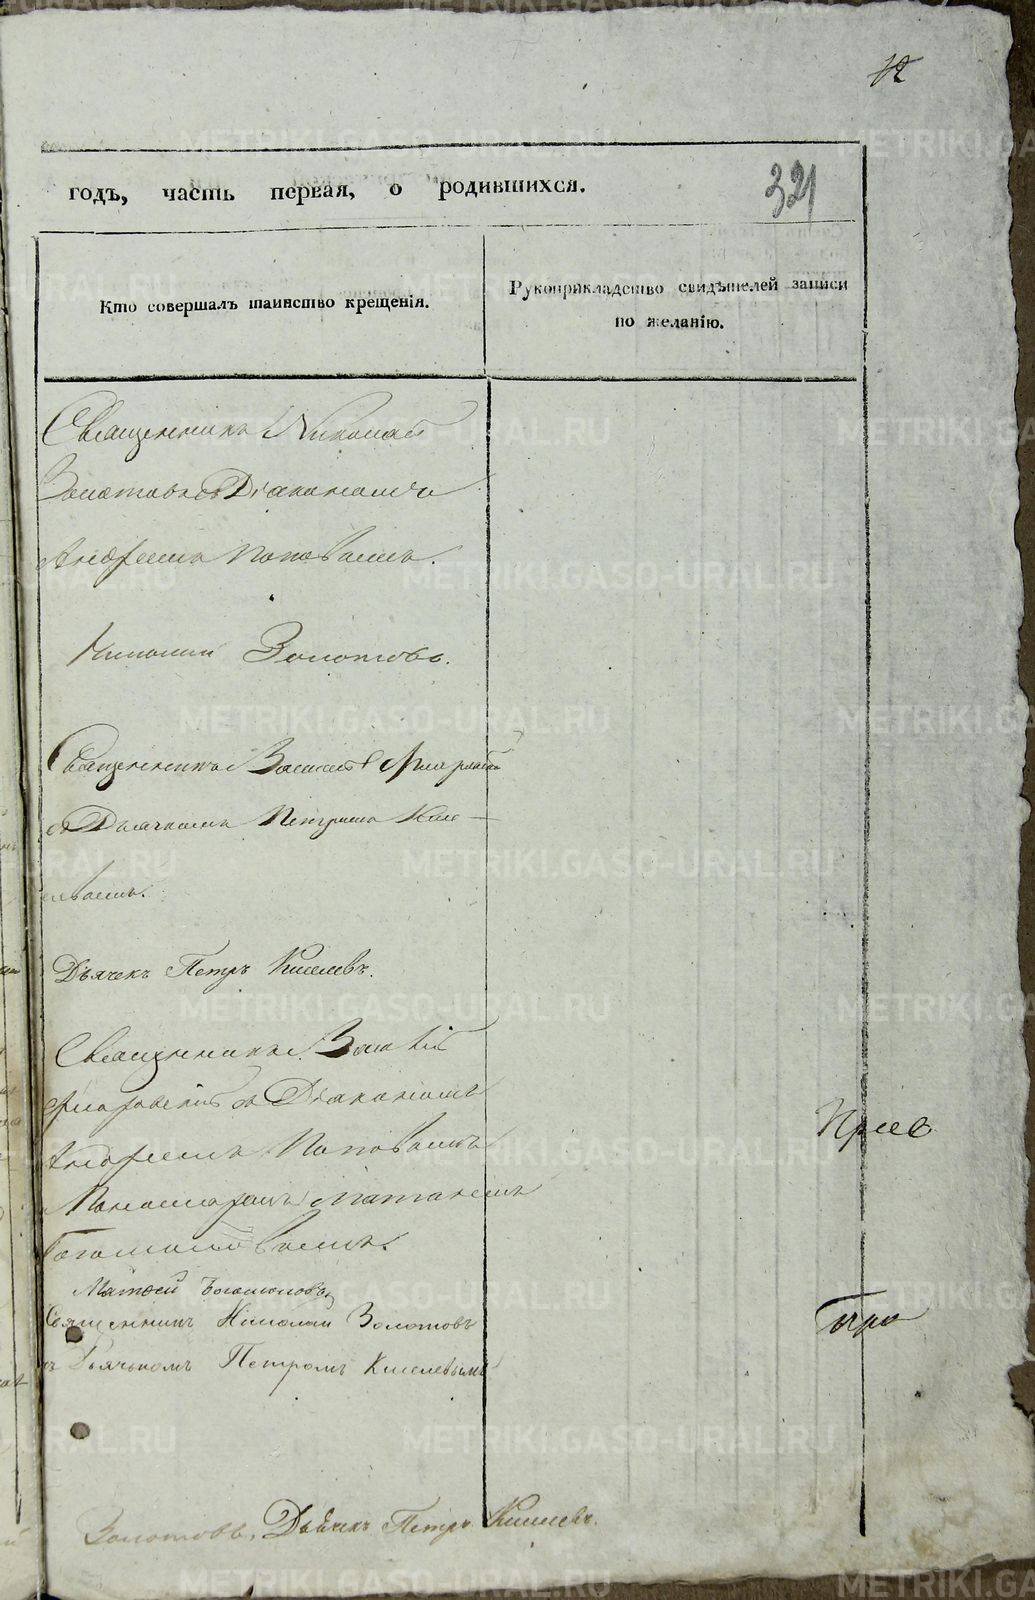 12
годъ, часть первая, о родившихся.
321
Кто совершалъ таинство крещенія.
Рукоприкладство свидѣтелей записи
по желанію.
Священникъ Николай
Золотовъ съ Діакономъ
Андреемъ Поповымъ.
Николай Золотовъ.
Священникъ Василій
съ Дьячкомъ Петромъ Кис-
елевымъ.
Дьячекъ Петръ Киселевъ.
Священникъ Василій
съ Діакономъ
Андреемъ Поповымъ
Пономаремъ Матвѣемъ
Богомоловымъ.
Матвей Богомоловъ
Священникъ Николай Золотовъ
съ Дьячкомъ Петромъ Киселевымъ
Золотовъ, Дьячекъ Петръ Киселевъ.
METRIKI.GASO-URAL.RU